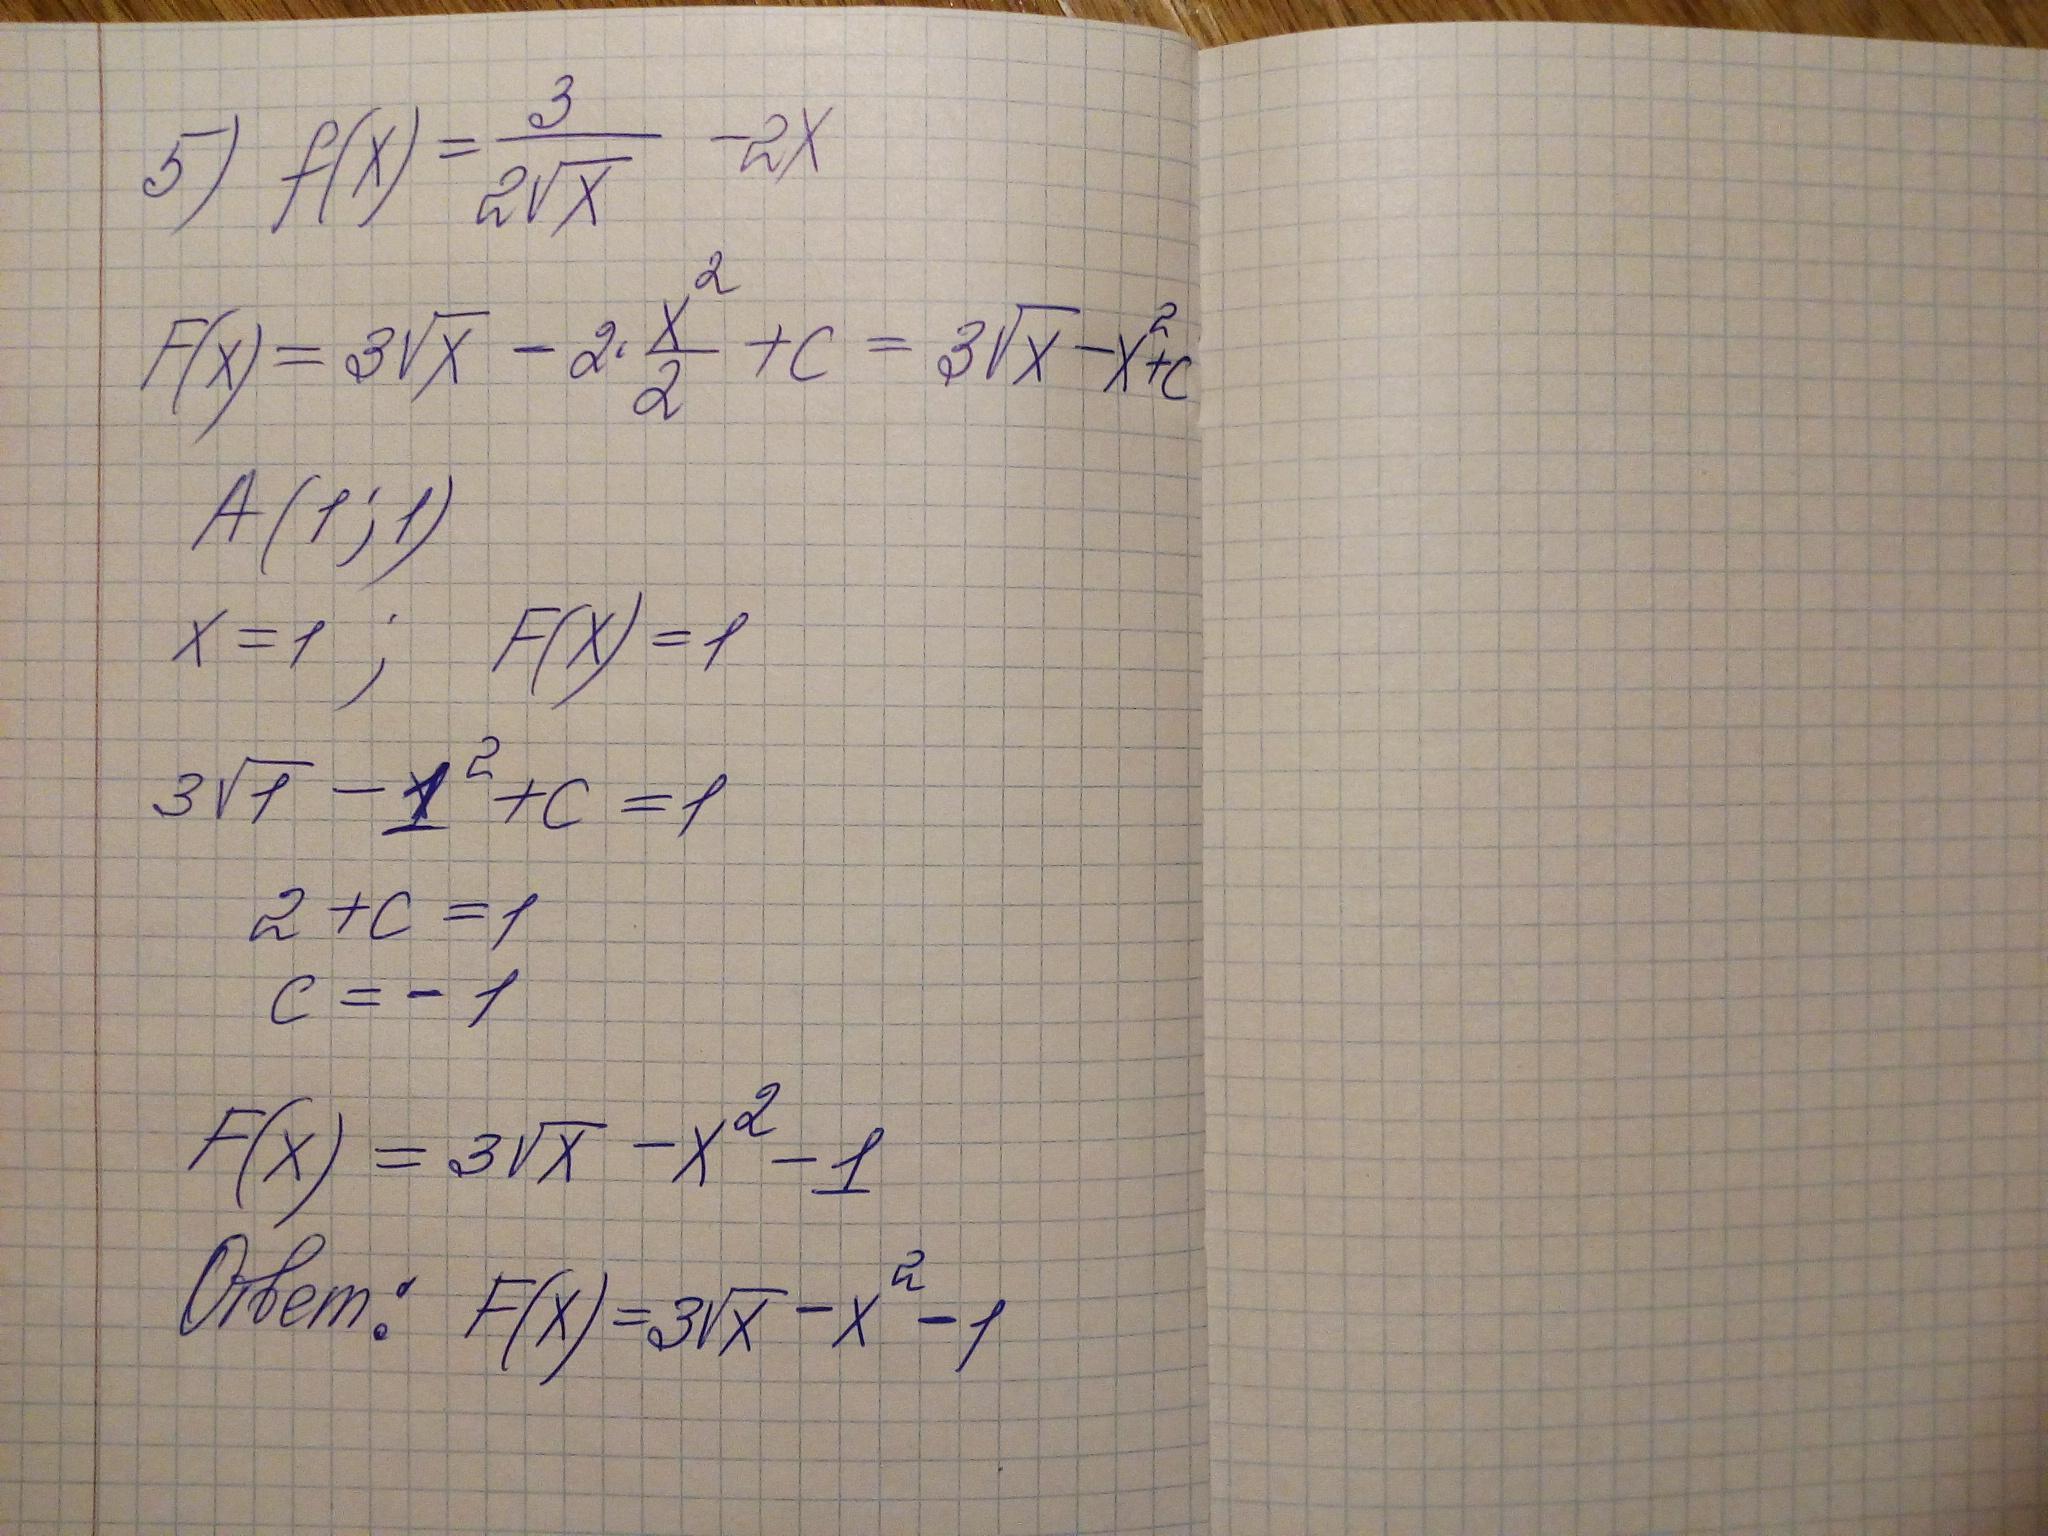 5) f(x) = 3/(2√x) - 2x
F(x) = 3√x - 2·x²/2 + C = 3√x - x² + C
A(1;1)
x = 1 ; F(x) = 1
3√1 - 1² + C = 1
2 + C = 1
C = - 1
F(x) = 3√x - x² - 1
Ответ: F(x) = 3√x - x² - 1